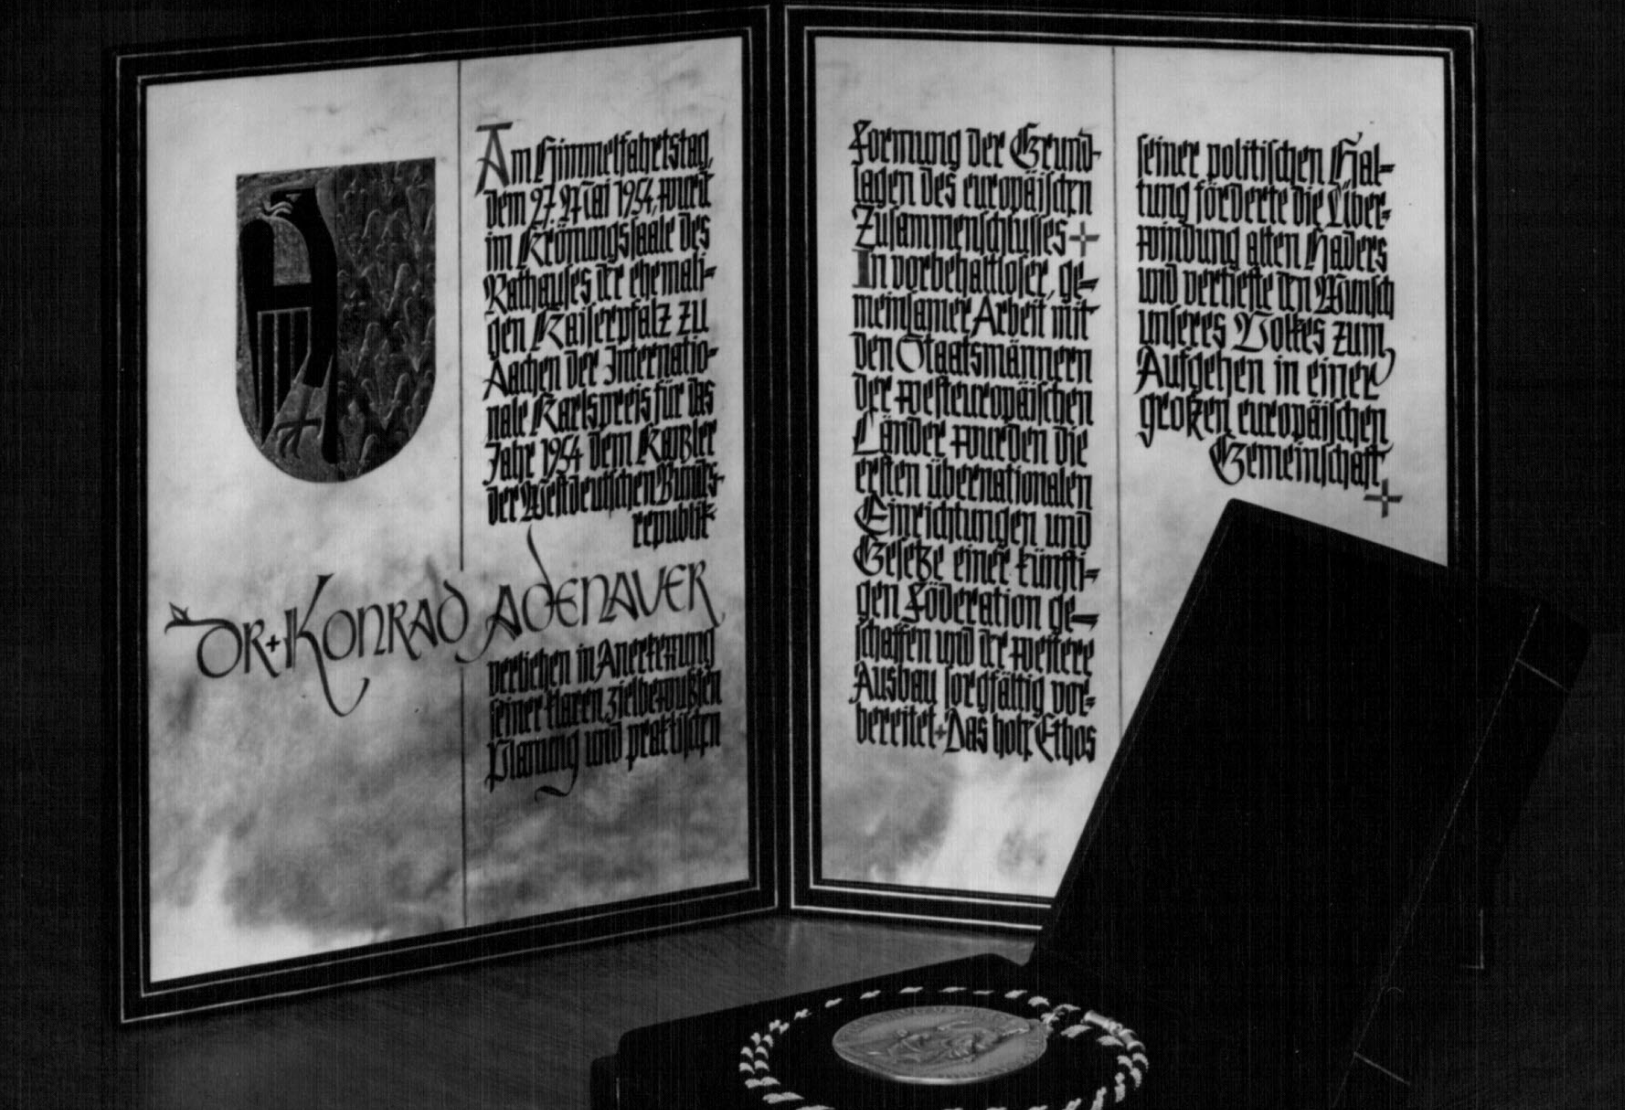 Am Himmelfahrtstag,
dem 27. Mai 1954, wurd
im Krönungssaale des
Rathauses der ehemali=
gen Kaiserpfalz zu
Aachen der Internatio=
nale Karlspreis für das
Jahr 1954 dem Kanzler
der Westdeutschen Bundes-
republik
DR + KONRAD ADENAUER
verliehen in Anerkennung
seiner klaren zielbewußten
Planung und praktischen
Formung der Grund-
lagen des europäischen
Zusammenschlusses +
In vorbehaltloser, ge=
meinsamer Arbeit mit
den Staatsmännern
der westeuropäischen
Länder wurden die
ersten übernationalen
Einrichtungen und
Gesetze einer künfti=
gen Föderation ge=
schaffen und der weitere
Ausbau sorgfältig vor=
bereitet + Das hohe Ethos
seiner politischen Hal=
tung förderte die Über=
windung alten Haders
und vertiefte den Wunsch
unseres Volkes zum
Aufgehen in einer
großen europäischen
Gemeinschaft
+